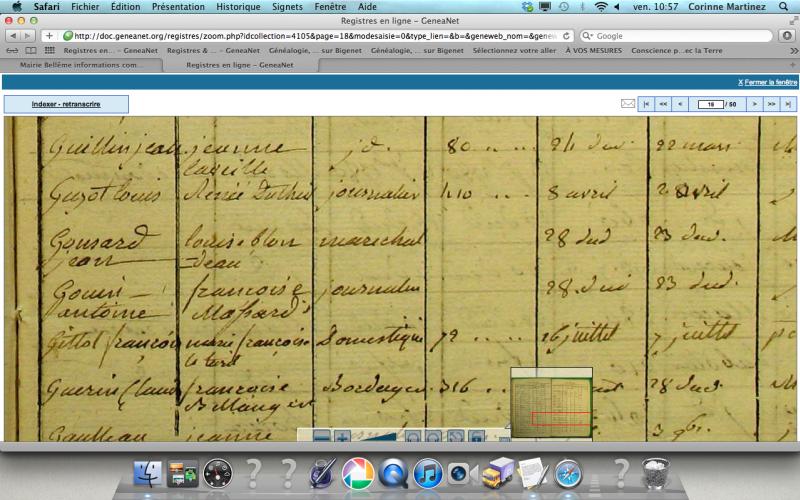 Safari Fichier Édition Présentation Historique Signets Fenêtre Aide ven. 10:57 Corinne Martinez
Registres en ligne – GeneaNet
http://doc.geneanet.org/registres/zoom.php?idcollection=4105&page=18&modesaisie=0&type_lien=&b=&geneweb_nom=&gene
Google
Registres en... – GeneaNet Registres & ... – GeneaNet Généalogie, ... sur Bigenet Généalogie, ... sur Bigenet Sélectionnez votre aller À VOS MESURES Conscience p...ec la Terre
Mairie Bellême informations com... Registres en ligne – GeneaNet
X Fermer la fenêtre
Indexer - retranscrire |< << < 18 / 50 > >> >|
Guillin jean jeanne jd. 80 24 dud 22 mars
Guyot louis Renée journalier 410 8 avril 28 avril
Gousard louise blon marechal 28 dud 23 dud.
jean deau
Gouin françoise journalier 28. dud 23 dud.
antoine
Gittot françois marie françoise Domestique 72 16 juillet 7 juillet
le tard
Guerin Claude françoise Bordager 316 28 dud.
Gaulleau jeanne